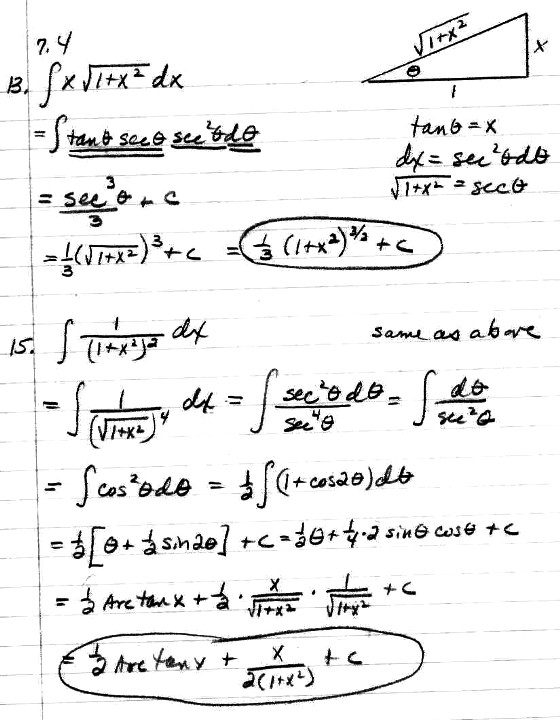 7.4
√1+x²
x
θ
1
13. ∫ x √1+x² dx
= ∫ tanθ secθ sec²θ dθ
tanθ = x
dx = sec²θ dθ
√1+x² = secθ
= sec³θ/3 + c
= 1/3 (√1+x²)³ + c = 1/3 (1+x²)^3/2 + c
15. ∫ 1/(1+x²)² dx same as above
= ∫ 1/(√1+x²)⁴ dx = ∫ sec²θ dθ/sec⁴θ = ∫ dθ/sec²θ
= ∫ cos²θ dθ = 1/2 ∫ (1+cos2θ) dθ
= 1/2 [θ + 1/2 sin2θ] + c = 1/2 θ + 1/4 · 2 sinθ cosθ + c
= 1/2 Arctanx + 1/2 · x/√1+x² · 1/√1+x² + c
= 1/2 Arctanx + x/2(1+x²) + c